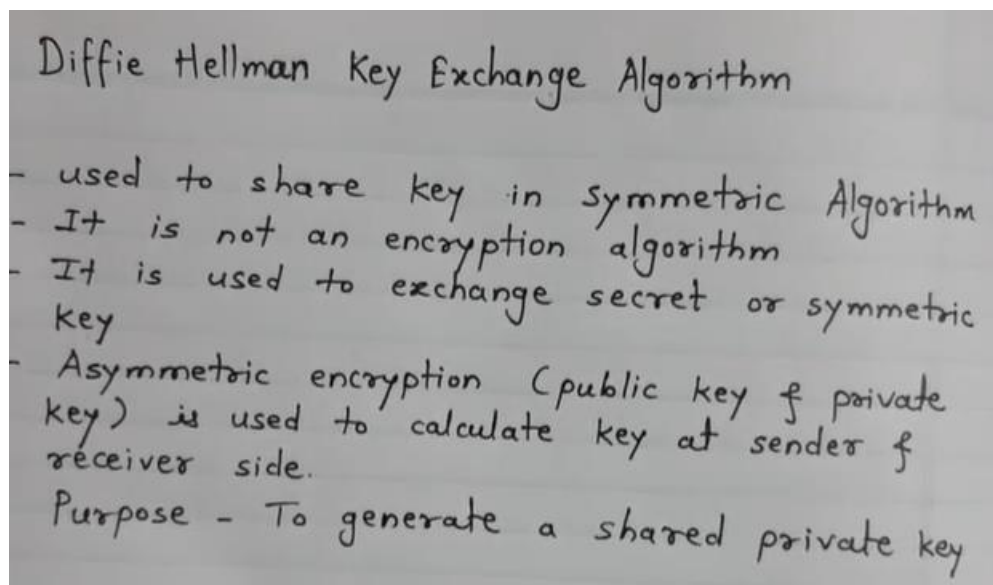 Diffie Hellman Key Exchange Algorithm
- used to share key in symmetric Algorithm
- It is not an encryption algorithm
- It is used to exchange secret or symmetric
key
- Asymmetric encryption (public key & private
key) is used to calculate key at sender &
receiver side.
Purpose - To generate a shared private key